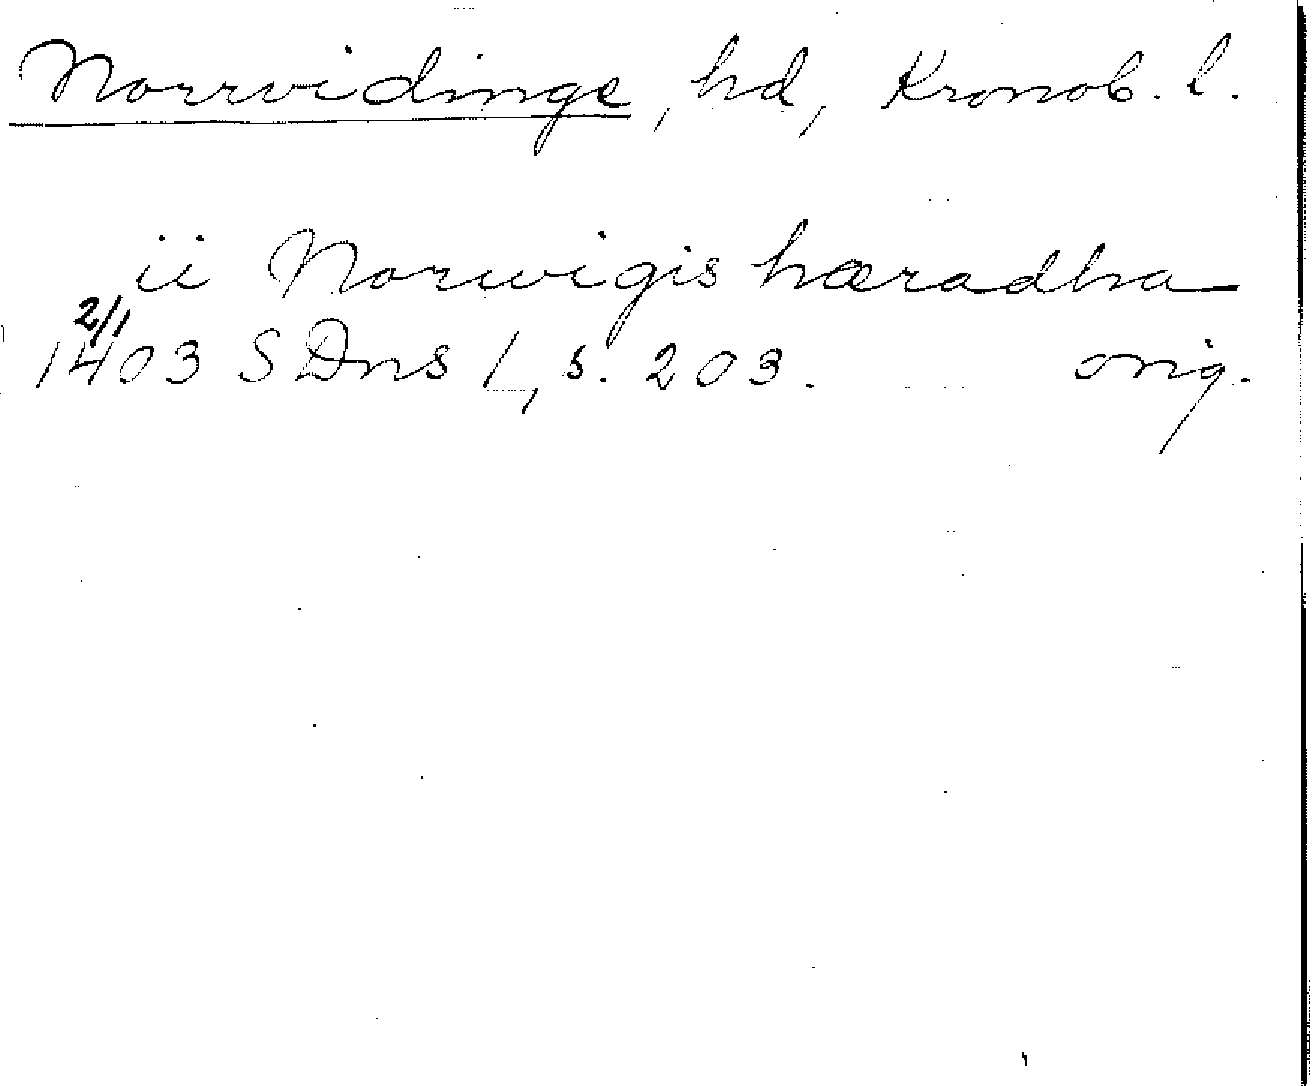 Norrvidinge, hd, Kronob. l.
ii Norwigis hæradha
2/1
1403 SDns 1, s. 203. orig.